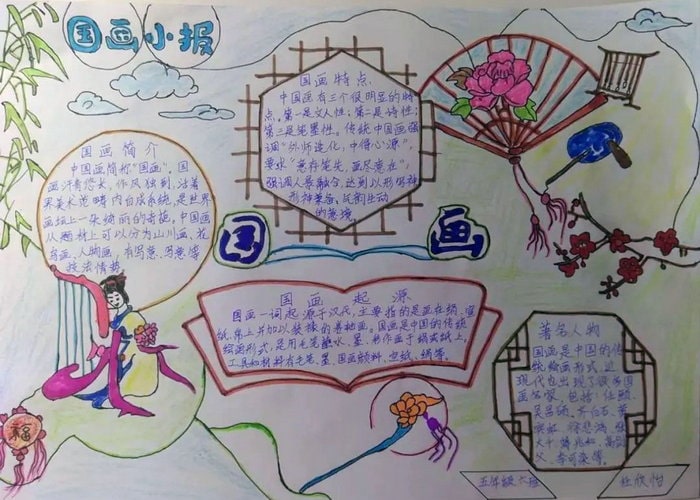 国画小报
国画特点
中国画有三个很明显的特
点。第一是文人性；第二是诗性；
第三是笔墨性。传统中国画强
调“外师造化，中得心源”，
要求“意存笔先，画尽意在”；
强调人景融合，达到以形写神
形神兼备，气韵生动
的意境
国画简介
中国画简称“国画”。国
画汗青悠长，作风独到，沿着
夹美术范畴内自成系统，是世界
画坛上一朵绚丽的奇葩。中国画
从题材上可以分为山川画、花
鸟画、人物画，有写意、写意等
技法情势。
国画
国画起源
国画一词起源于汉代，主要指的是画在绢、宣
纸、帛上并加以装裱的卷轴画。国画是中国的传统
绘画形式，是用毛笔蘸水、墨、彩作画于绢或纸上。
工具和材料有毛笔、墨、国画颜料、宣纸、绢等。
著名人物
国画是中国的传
统绘画形式，近
现代也出现了很多国
画名家，包括：任颐
吴昌硕、齐白石、黄
宾虹、徐悲鸿、张
大千、傅抱石、高剑
父、李可染等。
福
五年级六班
杜欣怡